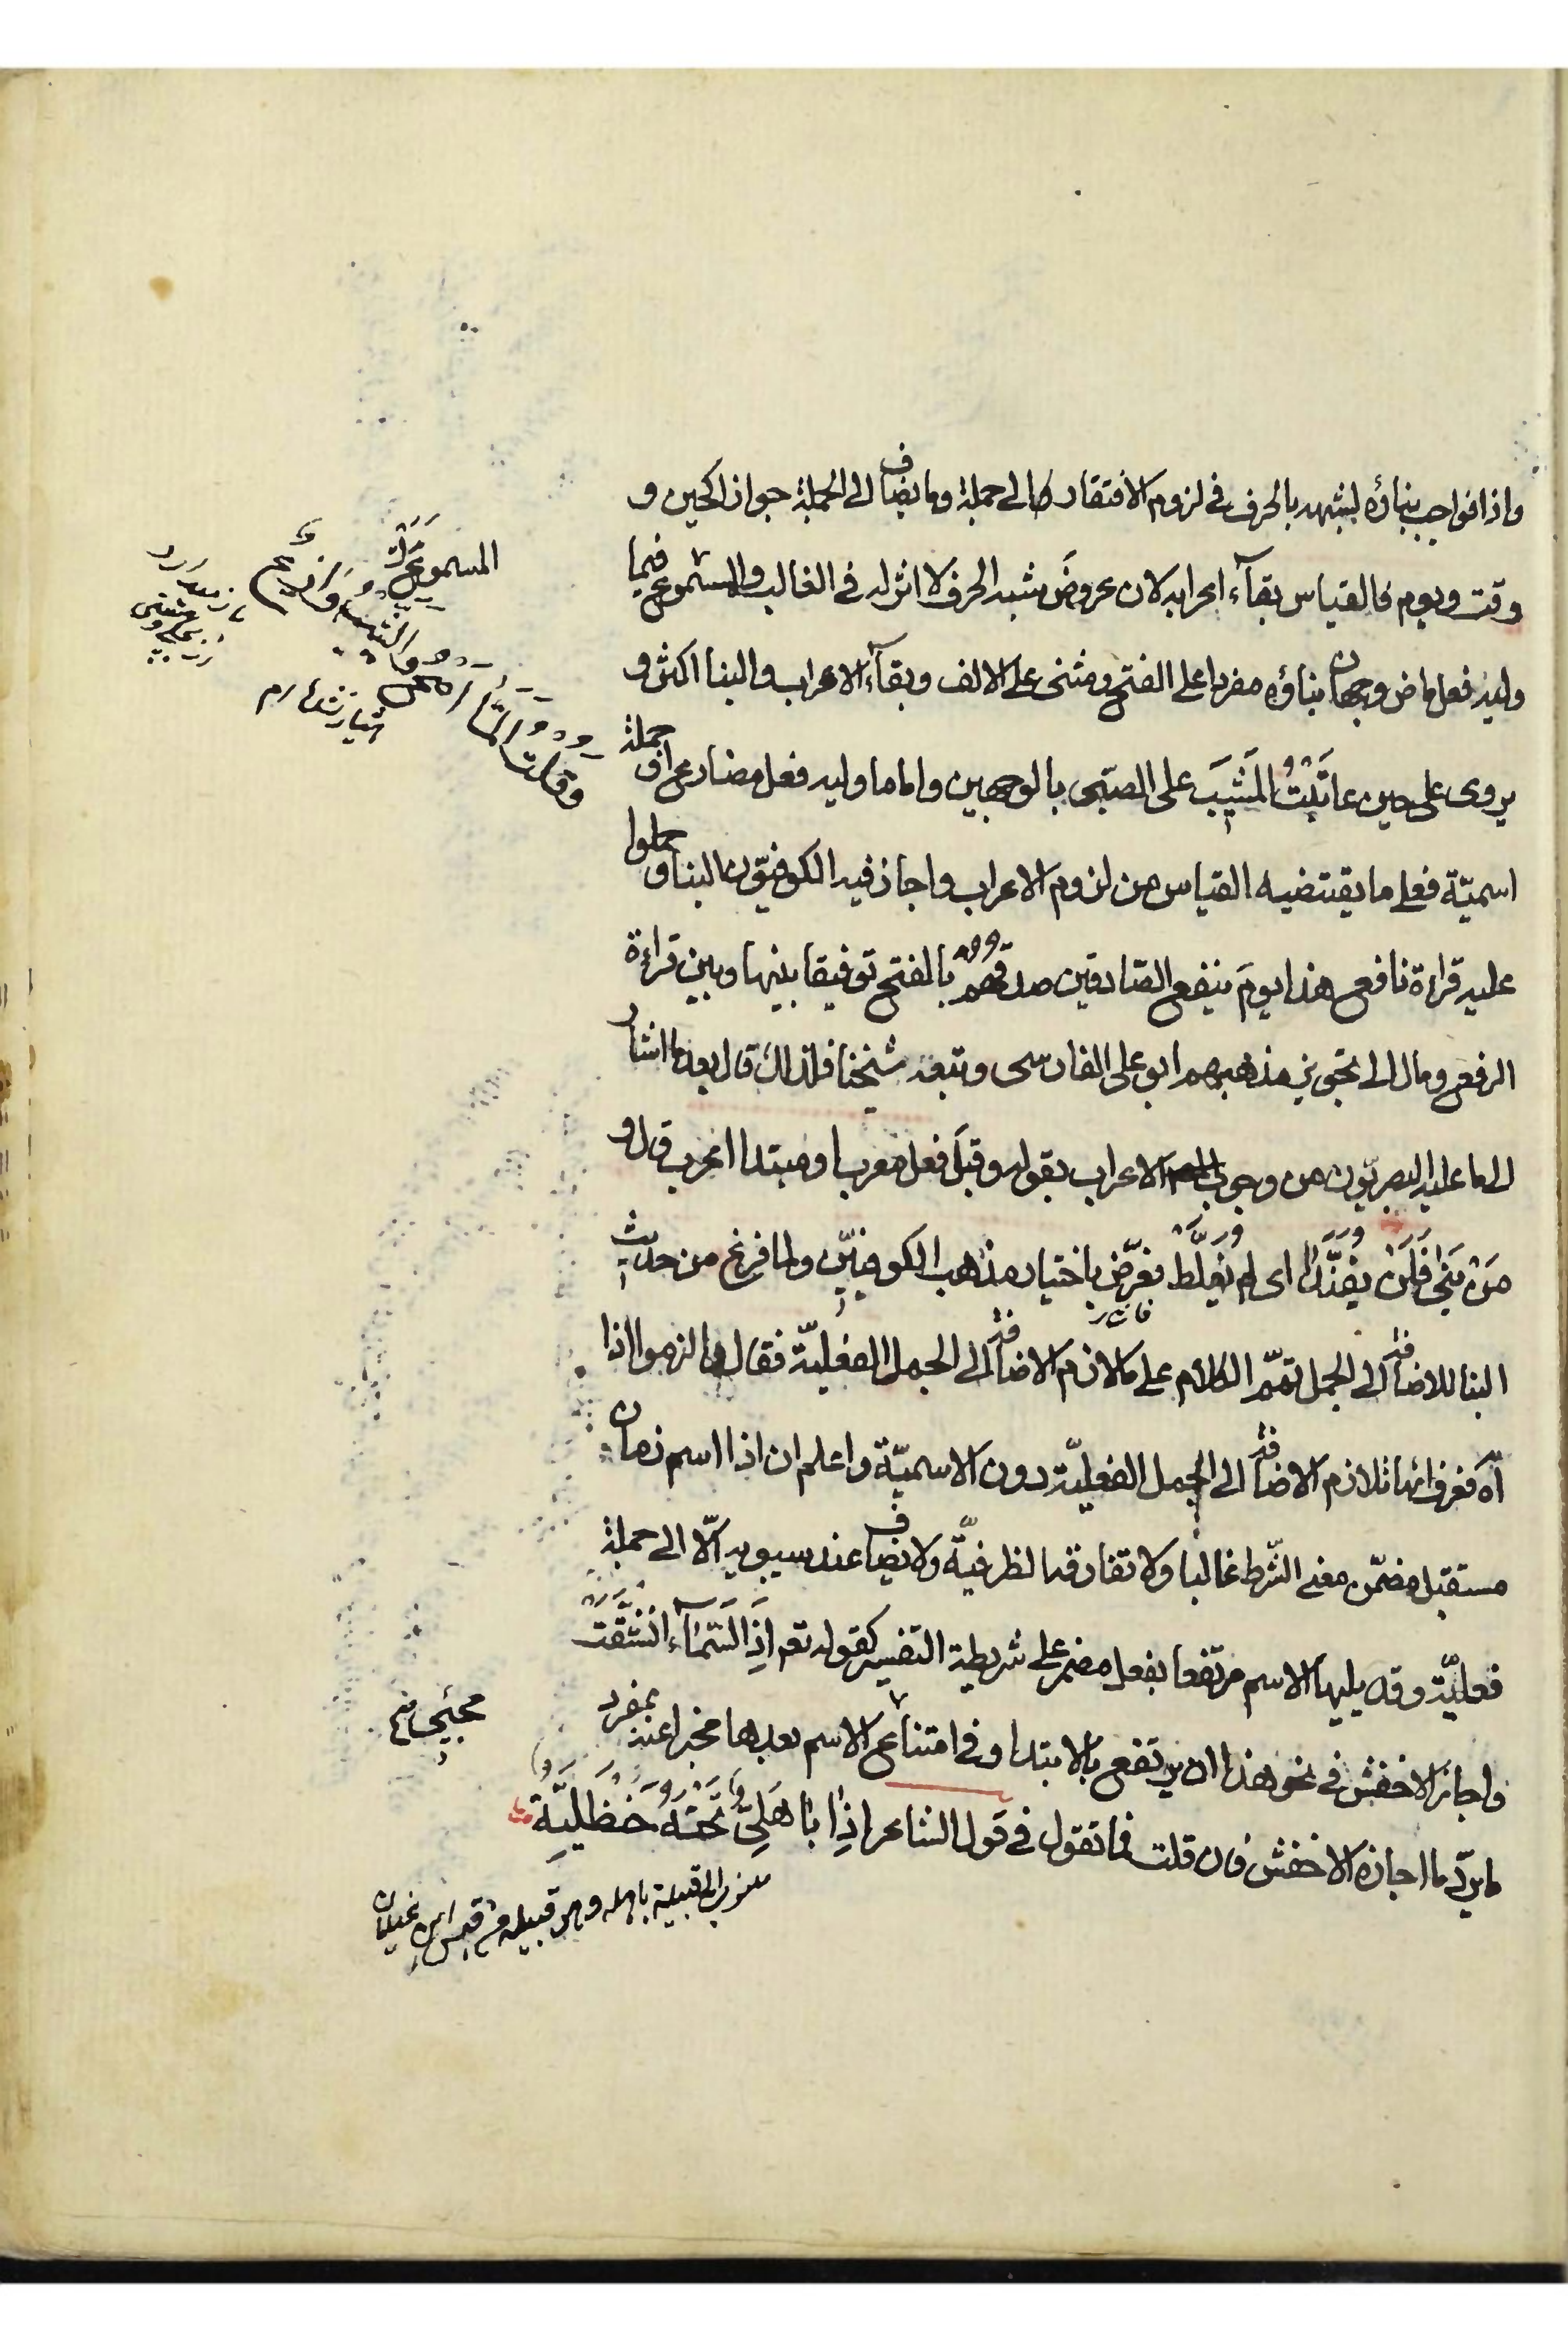 واذا فواجب بناؤه لشبهه بالحرف في لزوم الافتقار الى جملة وما يضاف الى الجملة جوازا كحين و
وقت ويوم فالقياس بقآء اعرابه لان عروض شبه الحرف لا اثر له في الغالب والمسموع فيما
وليه فعل ماض وجهان بناؤه مفردا على الفتح ومثنى على الالف وبقآء الاعراب والبنا اكثر و
يروى على حين عاتَبْتُ المَشيبَ على الصبى بالوجهين واما ما وليه فعل مضارع او جملة
اسميّة فعلى ما يقتضيه القياس من لزوم الاعراب واجاز فيه الكوفيّون البنا وحملوا
عليه قراءة نافع هذا يومَ ينفع الصادقين صدقهم بالفتح توفيقا بينها وبين قراءة
الرفع ومال الى تجويز مذهبهم ابو على الفارسى وتبعه شيخنا فلذلك قال بعد ما اشار
الى ما عليه البصريّون من وجوب الاعراب بقوله وقبلَ فعل معربا ومبتدا اعرب قال و
مَنْ بَنَى فَلَنْ يفنَّدا اى لم يُغلَّط يعرّض باختيار مذهب الكوفيّين ولما فرغ من حديث
البنا للاضافة الى الجمل تمّم الكلام على ما لازم الاضافة الى الجمل الفعليّة فقال والزموا اذا
آه فعرف انها تلازم الاضافة الى الجمل الفعليّة دون الاسميّة واعلم ان اذا اسم زمان
مستقبل مضمّن معنى الشرط غالبا ولا تفارقه الظرفيّة ولا يضاف عند سيبويه الّا الى جملة
فعليّة وقد يليها الاسم مرتفعا بفعل مضمر على شريطة التفسير كقوله تعم اذَا السَّمآء انْشَقَّتْ
واجاز الاخفش في نحو هذا ان يرتفع بالابتدا وفي امتناع الاسم بعدها مخبرا عنه بمفرد
ما يردّ ما اجازه الاخفش فان قلت فما تقول في قول الشاعر اذا باهلىّ تحته حنظليّة
المسموع
منسوب الى قبيلة باهله وهى قبيله من قيس ابن غيلان